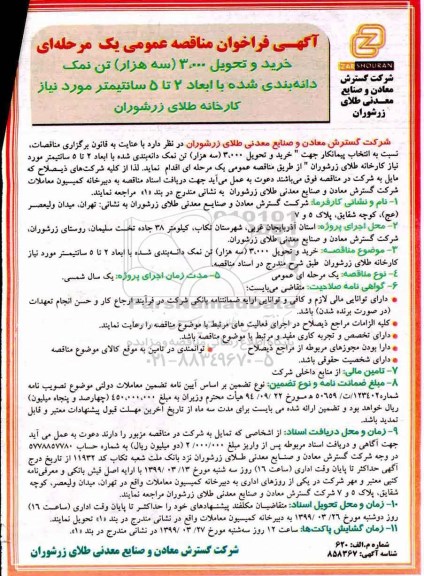 آگهی فراخوان مناقصه عمومی یک مرحله‌ای
خرید و تحویل ۳.۰۰۰ (سه هزار) تن نمک
دانه‌بندی شده با ابعاد ۲ تا ۵ سانتیمتر مورد نیاز
کارخانه طلای زرشوران
ZARSHOURAN
شرکت گسترش
معادن و صنایع
معدنی طلای
زرشوران
شرکت گسترش معادن و صنایع معدنی طلای زرشوران در نظر دارد با عنایت به قانون برگزاری مناقصات،
نسبت به انتخاب پیمانکار جهت " خرید و تحویل ۳.۰۰۰ (سه هزار) تن نمک دانه‌بندی شده با ابعاد ۲ تا ۵ سانتیمتر مورد
نیاز کارخانه طلای زرشوران " از طریق مناقصه عمومی یک مرحله ای اقدام نماید. لذا از کلیه شرکت‌های ذیصلاح که
مایل به شرکت در مناقصه فوق می‌باشند دعوت به عمل می‌آید جهت دریافت اسناد مناقصه به دبیرخانه کمیسیون معاملات
شرکت گسترش معادن و صنایع معدنی طلای زرشوران به نشانی مندرج در بند «۱» مراجعه نمایند.
۱- نام و نشانی کارفرما: شرکت گسترش معادن و صنایع معدنی طلای زرشوران به نشانی: تهران، میدان ولیعصر
(عج)، کوچه شقایق، پلاک ۵ و ۷
۲- محل اجرای پروژه: استان آذربایجان غربی، شهرستان تکاب، کیلومتر ۳۸ جاده تخت سلیمان، روستای زرشوران،
شرکت گسترش معادن و صنایع معدنی طلای زرشوران.
۳- موضوع مناقصه: خرید و تحویل ۳.۰۰۰ (سه هزار) تن نمک دانه‌بندی شده با ابعاد ۲ تا ۵ سانتیمتر مورد نیاز
کارخانه طلای زرشوران طبق شرح مندرج در اسناد مناقصه.
۴- نوع مناقصه: یک مرحله ای عمومی ۵- مدت زمان اجرای پروژه: یک سال شمسی.
۶- گواهی نامه صلاحیت: متقاضی می‌بایست:
دارای توانایی مالی لازم و کافی و توانایی ارایه ضمانتنامه بانکی شرکت در فرآیند ارجاع کار و حسن انجام تعهدات
(در صورت برنده شدن) باشد.
کلیه الزامات مراجع ذیصلاح در اجرای فعالیت های مرتبط با موضوع مناقصه را رعایت نمایند.
دارای تخصص و تجربه کاری مفید و مرتبط با موضوع مناقصه باشد.
دارا بودن مجوزهای مربوطه از مراجع ذیصلاح توانمندی در تامین به موقع کالای موضوع مناقصه
دارای شخصیت حقوقی باشد.
۰۲۱-۸۸۳۴۹۶۷۰-۵
۷- تامین مالی: از منابع داخلی شرکت
۸- مبلغ ضمانت نامه و نوع تضمین: نوع تضمین بر اساس آیین نامه تضمین معاملات دولتی موضوع تصویب نامه
شماره ۱۲۳۴۰۲/ت ۵۰۶۵۹ ه مورخ ۹۴/۰۹/۲۲ هیأت محترم وزیران به مبلغ ۴۵۰.۰۰۰.۰۰۰ (چهارصد و پنجاه میلیون)
ریال خواهد بود و تضمین ارائه شده می بایست برای مدت سه ماه از تاریخ آخرین مهلت قبول پیشنهادات معتبر و قابل
تمدید باشد.
۹- زمان و محل دریافت اسناد: از اشخاصی که تمایل به شرکت در مناقصه مزبور را دارند دعوت به عمل می آید
جهت آگاهی و دریافت اسناد مربوطه پس از واریز مبلغ ۲/۰۰۰/۰۰۰ (دو میلیون ریال) به شماره حساب ۵۷۷۸۸۵۷۷۸۰
در وجه شرکت گسترش معادن و صنایع معدنی طلای زرشوران نزد بانک ملت شعبه تکاب کد ۱۱۹۳۲ از تاریخ درج
آگهی حداکثر تا پایان وقت اداری (ساعت ۱۶) روز سه شنبه مورخ ۱۳۹۹/۰۳/۱۳ با ارایه اصل فیش بانکی و معرفی‌نامه
کتبی معتبر و مهر شرکت در یکی از روزهای اداری به دبیرخانه کمیسیون معاملات واقع در تهران، میدان ولیعصر، کوچه
شقایق، پلاک ۵ و ۷ شرکت گسترش معادن و صنایع معدنی طلای زرشوران مراجعه نمایند.
۱۰- زمان و محل تحویل اسناد: متقاضیان مکلفند پیشنهادهای خود را حداکثر تا پایان وقت اداری (ساعت ۱۶)
روز دوشنبه مورخ ۱۳۹۹/۰۳/۲۶ به دبیرخانه کمیسیون معاملات واقع در نشانی مندرج در بند «۱» تحویل نمایند.
۱۱- زمان گشایش پاکت‌ها: ساعت ۱۲ روز سه‌شنبه مورخ ۱۳۹۹/۰۳/۲۷ در نشانی مندرج در بند «۱».
شماره م.الف: ۶۲۰
شناسه آگهی: ۸۵۸۳۶۷
شرکت گسترش معادن و صنایع معدنی طلای زرشوران